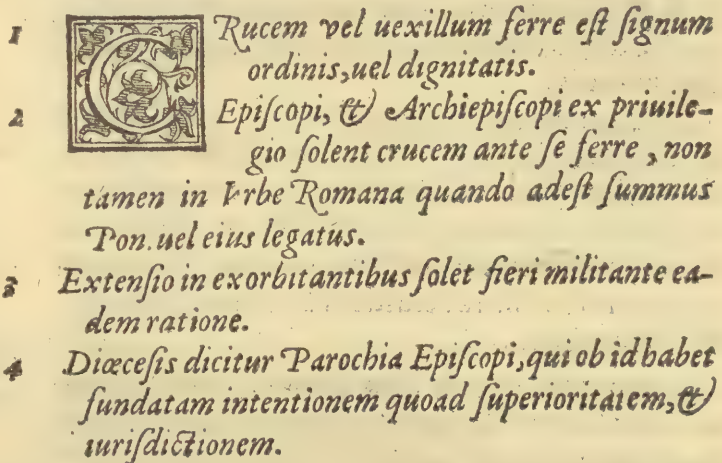 1 CRucem vel uexillum ferre eſt ſignum
ordinis, uel dignitatis.
2 Epiſcopi, & Archiepiſcopi ex priuile-
gio ſolent crucem ante ſe ferre, non
tamen in Vrbe Romana quando adeſt ſummus
Pon. uel eius legatus.
3 Extenſio in exorbitantibus ſolet fieri militante ea-
dem ratione.
4 Diœceſis dicitur Parochia Epiſcopi, qui ob id habet
fundatam intentionem quoad ſuperioritatem, &
iuriſdictionem.